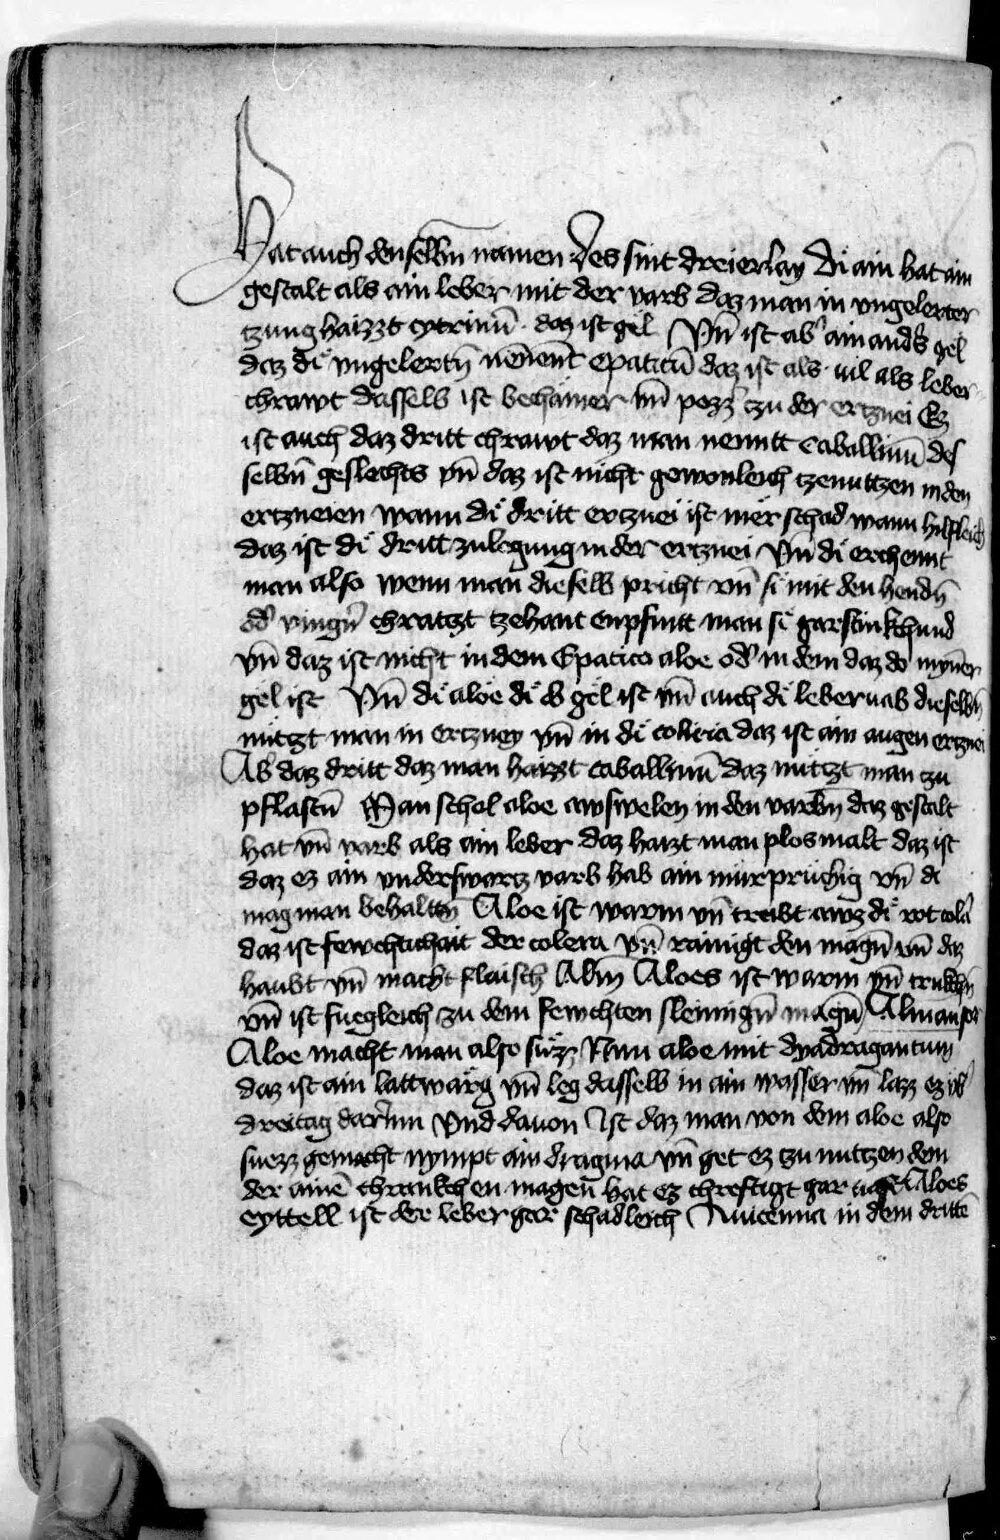 Hat auch denselbñ namen Des sint dreierlay Di ain hat ain
gestalt als ain leber mit der varb daz man in vngelerter
tzung haizzt cytrinũ · daz ist gel Vñ ist ab' ain anders gel
daz di vngelertñ nennent epaticũ daz ist als vil als leber
chrawt dasselb ist bechamer vñ pezz' tzu der ertznei Ez
ist auch daz dritt chrawt daz man nennt Caballinũ des
selbñ geslechts vñ daz ist nicht gewonleich tzenuttzen in den
ertzneien wann di dritt ertznei ist mer schad wann hilfleich
daz ist di dritt zulegung in der ertznei Vñ di erchennt
man also wenn man dieselb pricht vñ si mit den hendñ
od' vingñ chratzt tzehant enpfint man si gar stinkchund
vñ daz ist nicht in dem Epatico aloe od' in dem daz do mynner
gel ist Vñ di aloe di do gel ist vñ auch di lebervab dieselbñ
nützt man in ertzney vñ in di coliria daz ist ain augen ertznei
Ab' daz dritt daz man haizzt caballinũ daz nützt man zu
pflastñ Man schol aloe awswelen in den varbñ daz gestalt
hat vñ varb als ain leber daz haizt man plosmalt daz ist
daz ez ain vnderswartz varb hab ain mürprüchig vñ di
mag man behaltñ Aloe ist warm vñ treibt awz di rot cola
daz ist fewchtichait der colera vñ rainigt den magñ vñ daz
haubt vñ macht flaisch Aloes ist warm vñ trukchñ
vñ ist fuegleich zu dem fewchten sleimigñ magñ Almansor
Aloe macht man also süzz Nim aloe mit dyadragantum
daz ist ain lattwarg vñ leg dasselb in ain wasser vñ lazz ez
dreitag darinn Vnd davon Ist daz man von dem aloe also
suezz gemacht nympt ain dragma vñ get ez tzu nutzen dem
der ainẽ chrankchen magen hat ez chreftigt gar Aloes
eyttell ist der leber gar schadleich Auicenna in dem drittẽ